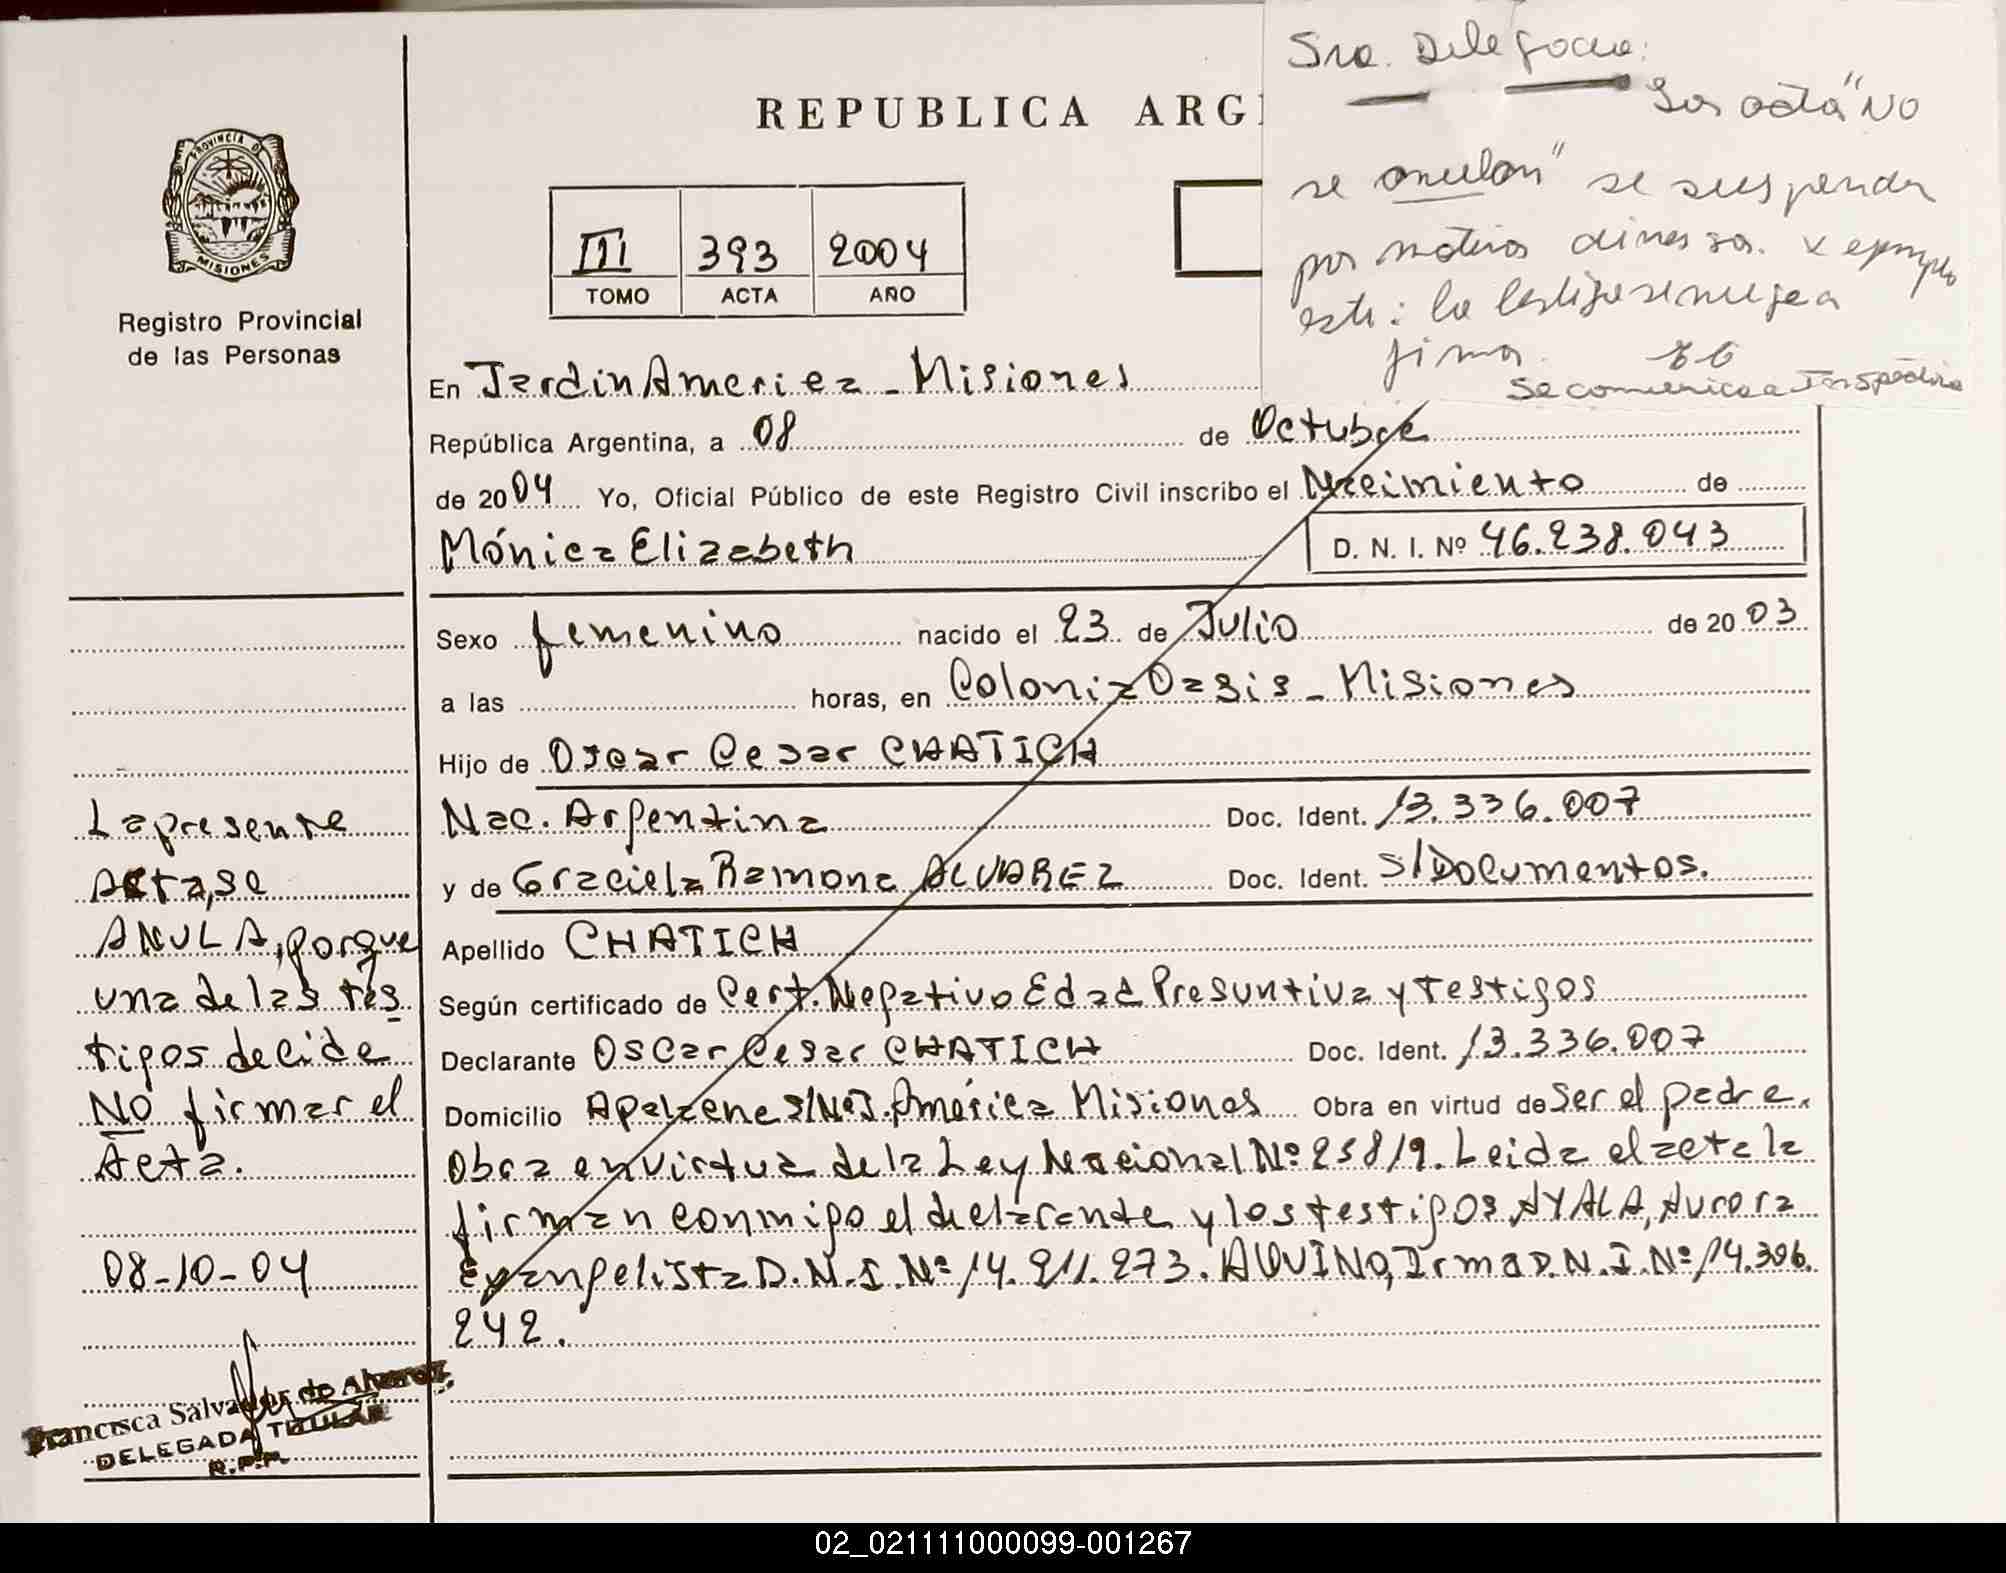 Sra. Delegada:
Las acta "NO
se anulan" se suspenden
por motivos diversos. x ejemplo
este: la testigo se niega a
firmar.
Se comunica a Inspectora
REPUBLICA ARG
PROVINCIA DE
MISIONES
Registro Provincial
de las Personas
III 393 2004
TOMO ACTA AÑO
En Jardin America - Misiones
República Argentina, a 08 de Octubre
de 2004 Yo, Oficial Público de este Registro Civil inscribo el Nacimiento de
Mónica Elizabeth D. N. I. Nº 46.238.043
Sexo femenino nacido el 23 de Julio de 2003
a las horas, en Colonia Oasis - Misiones
Hijo de Oscar Cesar CHATICH
Nac. Argentina Doc. Ident. 13.336.007
y de Graciela Ramona ALVAREZ Doc. Ident. S/Documentos.
Apellido CHATICH
Según certificado de Cert. Negativo Edad Presuntiva y Testigos
Declarante Oscar Cesar CHATICH Doc. Ident. 13.336.007
Domicilio Apalaene S/Nº J. América Misiones Obra en virtud de Ser el padre.
Obra en virtud de la Ley Nacional Nº 25819. Leida el acta la
firman conmigo el declarante y los testigos AYALA, Aurora
Evangelista D.N.I. Nº 14.211.273. AQUINO, Irma D.N.I. Nº 14.306.
242.
La presente
Acta, se
ANULA, porque
una de las tes
tigos decide
NO firmar el
Acta.
08-10-04
Francisca Salvador de Alvarez
DELEGADA TITULAR
R.P.P.
02_021111000099-001267